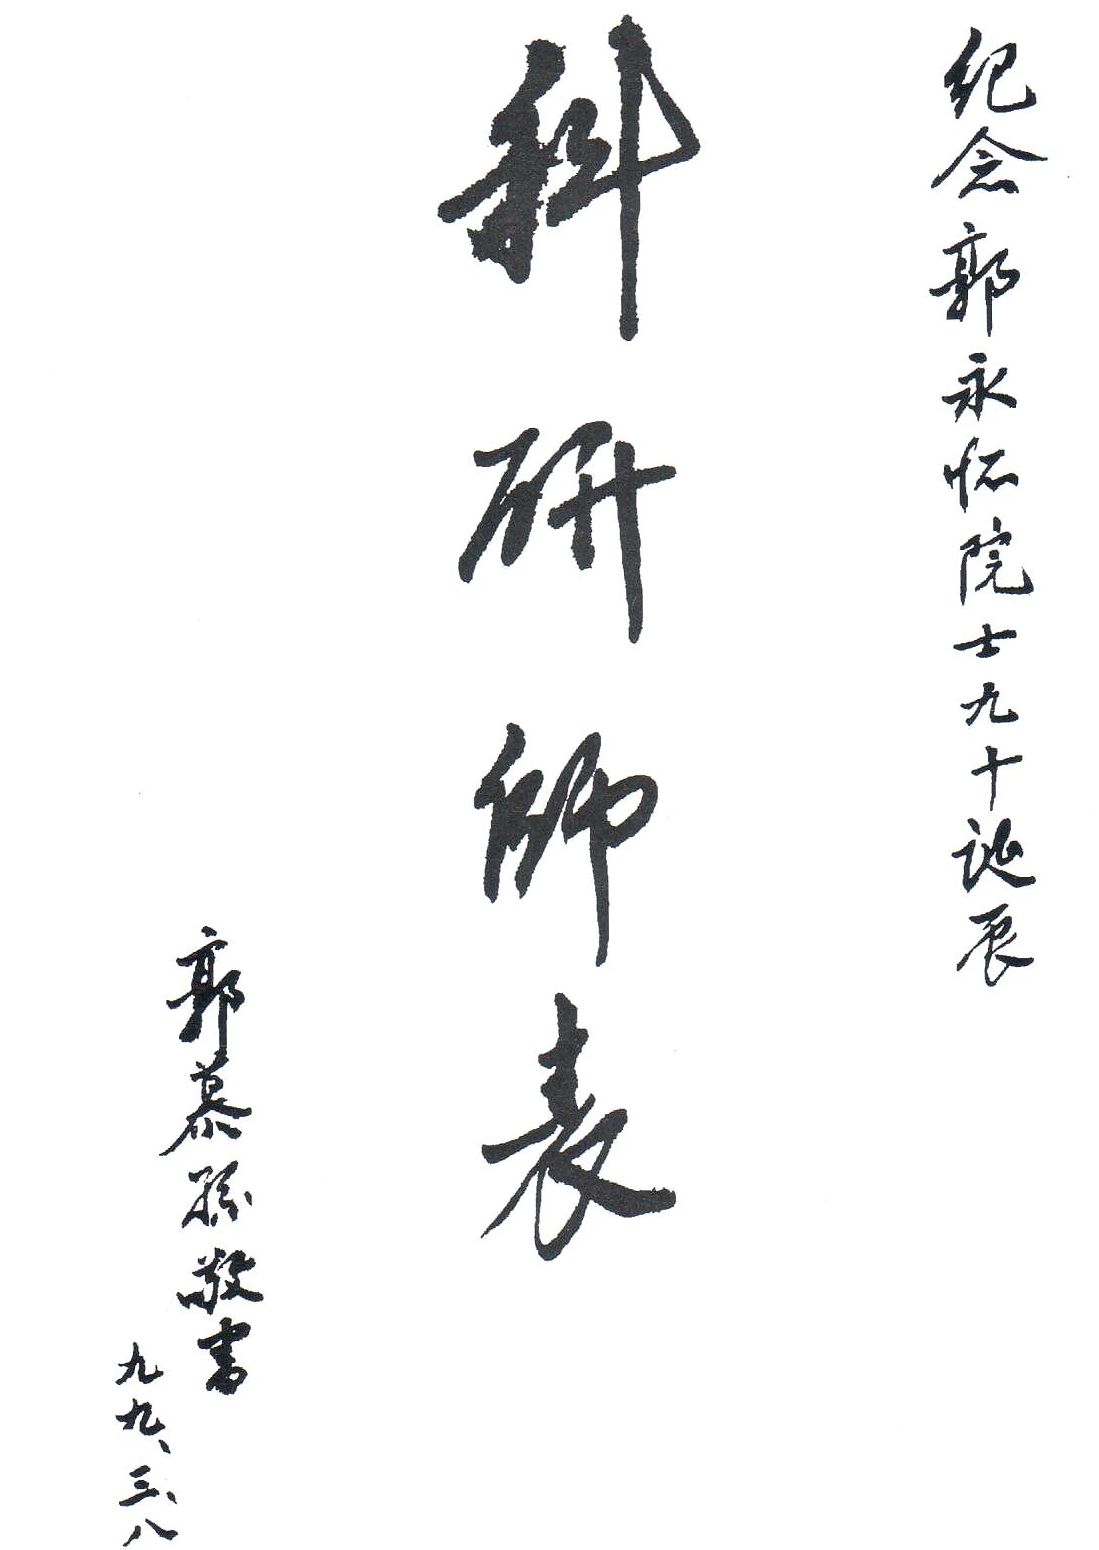 纪念郭永怀院士九十诞辰
科研师表
郭慕孙敬书
九九、三、八